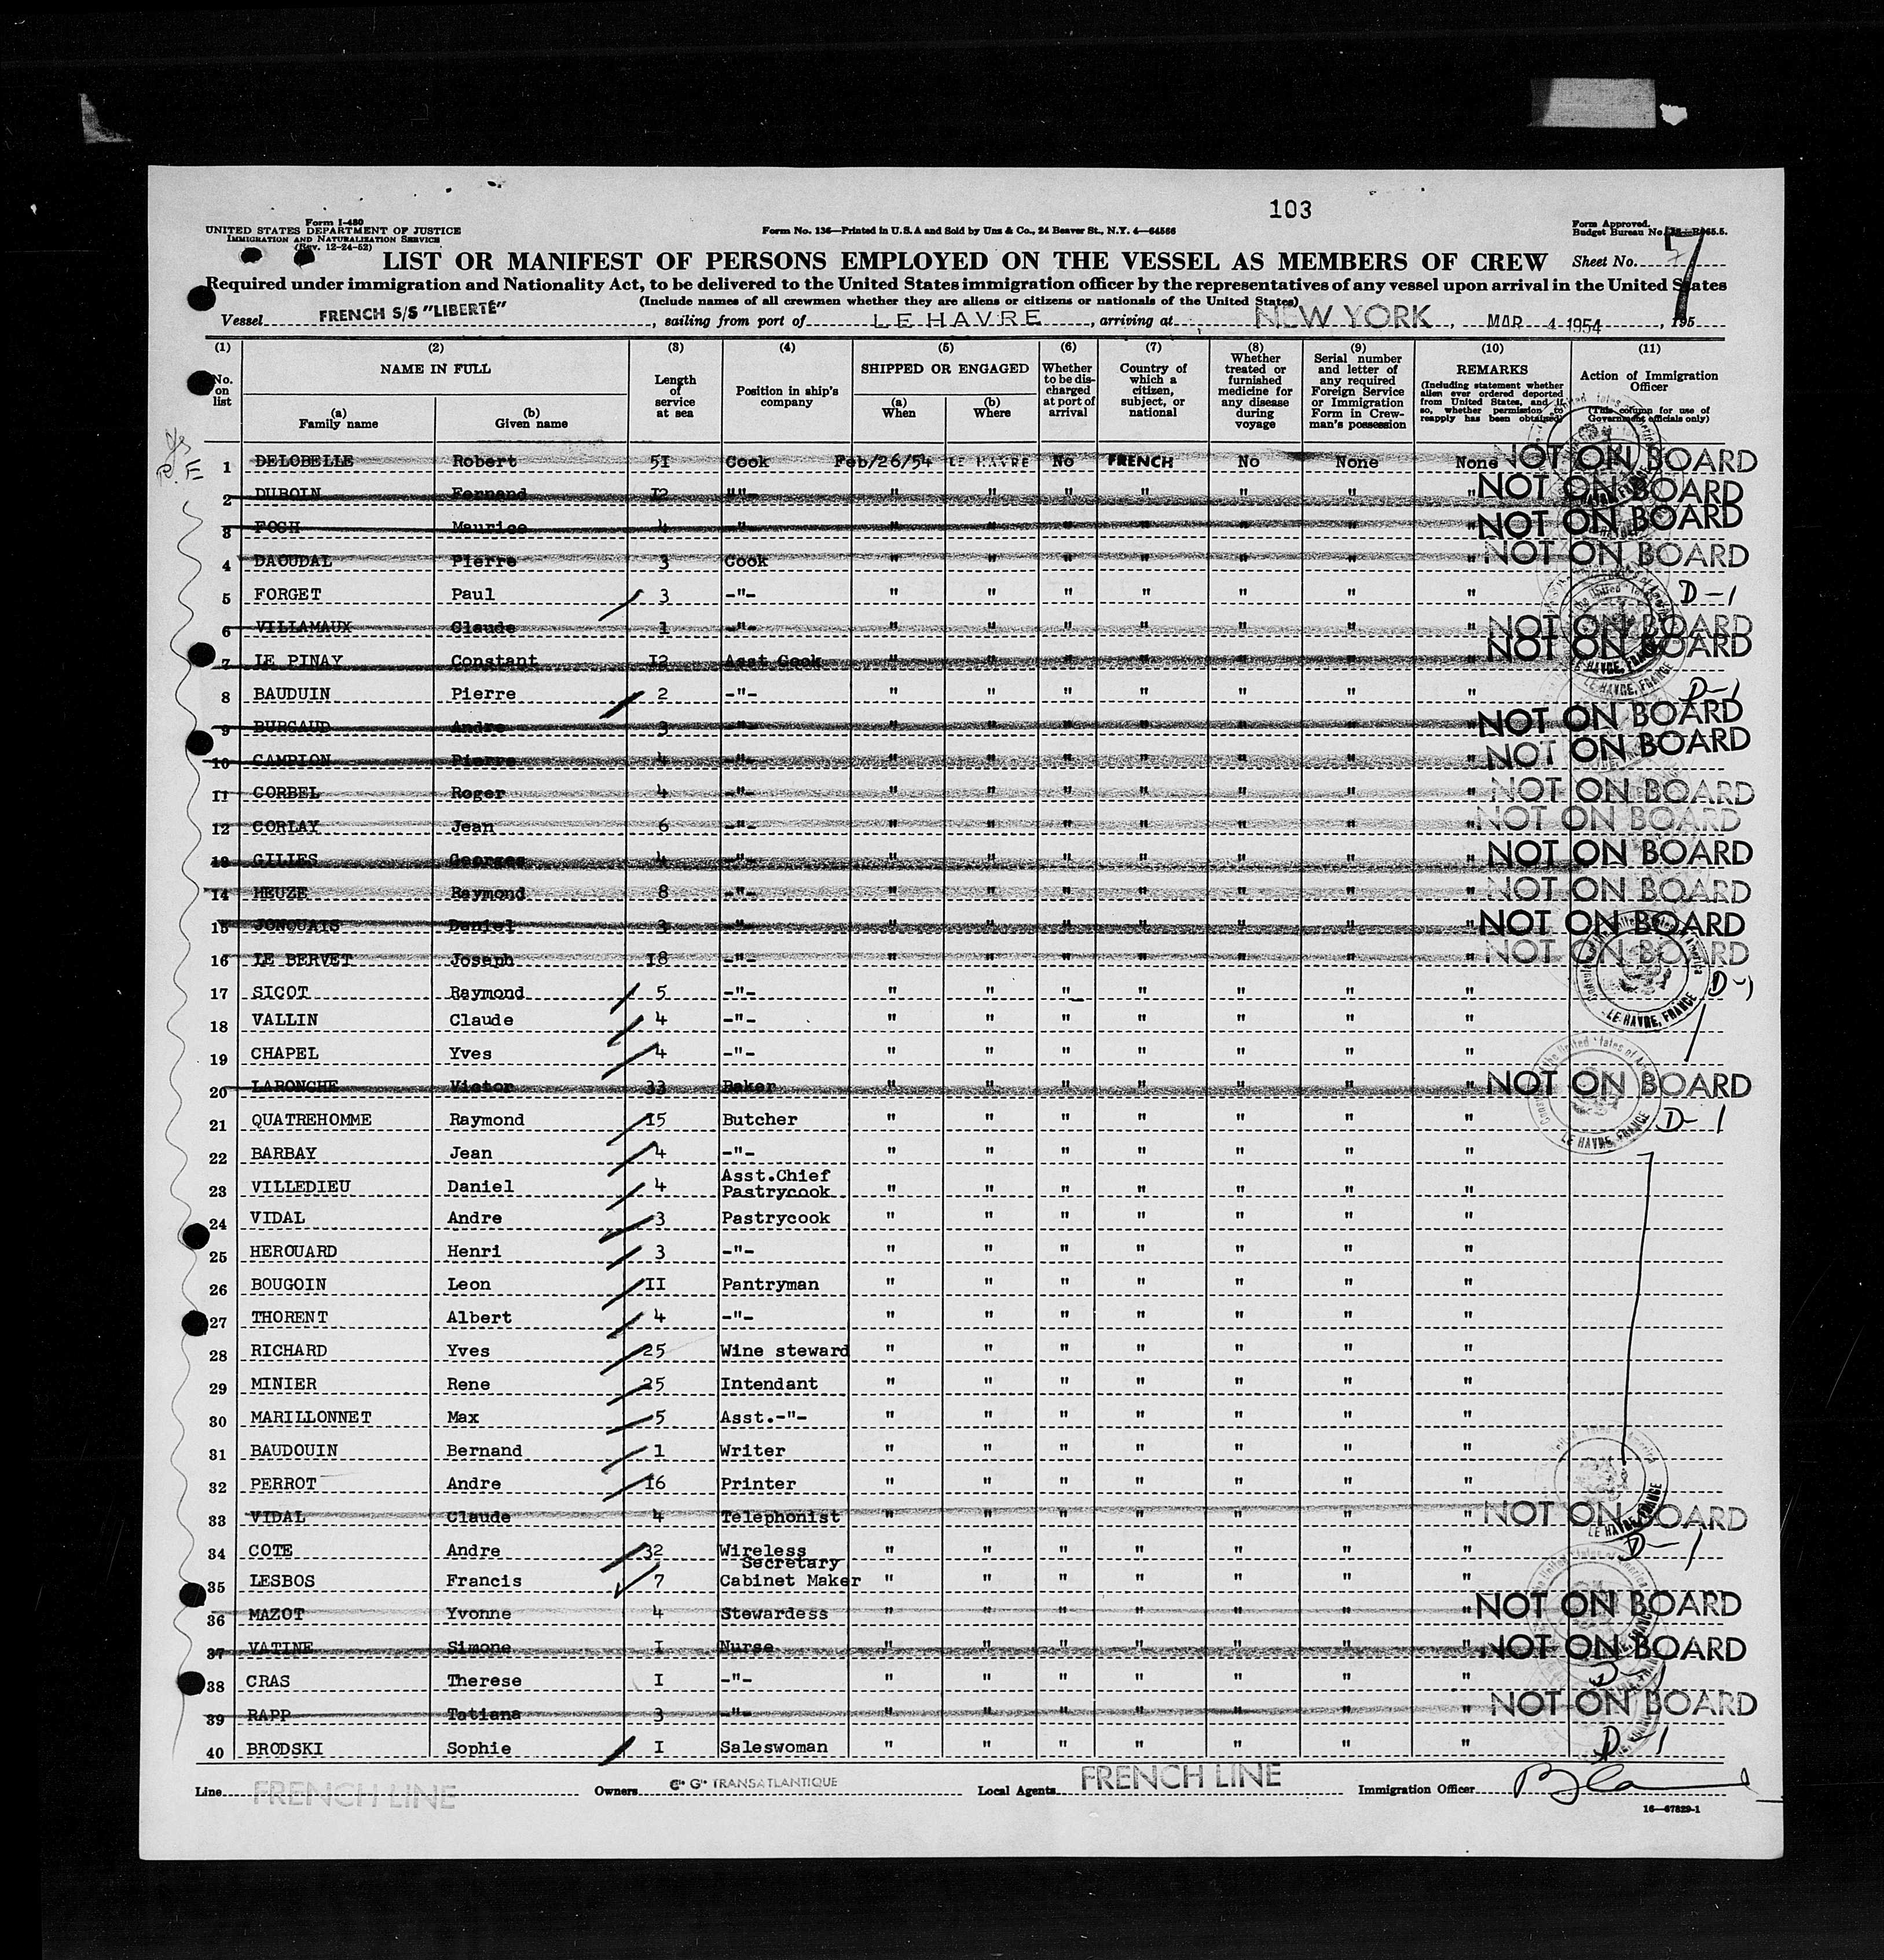 103
Form I-480
UNITED STATES DEPARTMENT OF JUSTICE
IMMIGRATION AND NATURALIZATION SERVICE
(Rev. 12-24-52)
Form No. 136—Printed in U.S.A and Sold by Unz & Co., 24 Beaver St., N.Y. 4—64566
Form Approved.
Budget Bureau No.
LIST OR MANIFEST OF PERSONS EMPLOYED ON THE VESSEL AS MEMBERS OF CREW
Sheet No. 7
Required under immigration and Nationality Act, to be delivered to the United States immigration officer by the representatives of any vessel upon arrival in the United States
(Include names of all crewmen whether they are aliens or citizens or nationals of the United States)
Vessel FRENCH S/S "LIBERTÉ", sailing from port of LE HAVRE, arriving at NEW YORK, MAR 4 1954, 195
(1) (2) (3) (4) (5) (6) (7) (8) (9) (10) (11)
No. on list
NAME IN FULL
(a) Family name
(b) Given name
Length of service at sea
Position in ship's company
SHIPPED OR ENGAGED
(a) When
(b) Where
Whether to be discharged at port of arrival
Country of which a citizen, subject, or national
Whether treated or furnished medicine for any disease during voyage
Serial number and letter of any required Foreign Service or Immigration Form in Crewman's possession
REMARKS
(Including statement whether alien ever ordered deported from United States, and if so, whether permission to reapply has been obtained)
Action of Immigration Officer
(This column for use of Government officials only)
1 DELOBELLE Robert 5I Cook Feb/26/54 LE HAVRE No FRENCH No None None NOT ON BOARD
2 DUBOIN Fernand I2 ""- " " " " " " " NOT ON BOARD
3 FOSH Maurice 4 -"- " " " " " " " NOT ON BOARD
4 DAOUDAL Pierre 3 Cook " " " " " " " NOT ON BOARD
5 FORGET Paul 3 -"- " " " " " " " D-1
6 VILLAMAUX Claude 1 -"- " " " " " " " NOT ON BOARD
7 LE PINAY Constant I2 Asst Cook " " " " " " " NOT ON BOARD
8 BAUDUIN Pierre 2 -"- " " " " " " " D-1
9 BURGAUD Andre 3 -"- " " " " " " " NOT ON BOARD
10 CAMPION Pierre 4 -"- " " " " " " " NOT ON BOARD
11 CORBEL Roger 4 -"- " " " " " " " NOT ON BOARD
12 CORLAY Jean 6 -"- " " " " " " " NOT ON BOARD
13 GILIES Georges 4 -"- " " " " " " " NOT ON BOARD
14 HEUZE Raymond 8 -"- " " " " " " " NOT ON BOARD
15 JONQUAIS Daniel 3 -"- " " " " " " " NOT ON BOARD
16 LE BERVET Joseph I8 -"- " " " " " " " NOT ON BOARD
17 SICOT Raymond 5 -"- " " " " " " " D-1
18 VALLIN Claude 4 -"- " " " " " " "
19 CHAPEL Yves 4 -"- " " " " " " "
20 LARONCHE Victor 33 Baker " " " " " " " NOT ON BOARD
21 QUATREHOMME Raymond I5 Butcher " " " " " " " D-1
22 BARBAY Jean 4 -"- " " " " " " "
23 VILLEDIEU Daniel 4 Asst.Chief Pastrycook " " " " " " "
24 VIDAL Andre 3 Pastrycook " " " " " " "
25 HEROUARD Henri 3 -"- " " " " " " "
26 BOUGOIN Leon II Pantryman " " " " " " "
27 THORENT Albert 4 -"- " " " " " " "
28 RICHARD Yves 25 Wine steward " " " " " " "
29 MINIER Rene 25 Intendant " " " " " " "
30 MARILLONNET Max 5 Asst.-"- " " " " " " "
31 BAUDOUIN Bernand 1 Writer " " " " " " "
32 PERROT Andre I6 Printer " " " " " " "
33 VIDAL Claude 4 Telephonist " " " " " " " NOT ON BOARD
34 COTE Andre 32 Wireless Secretary " " " " " " " D-1
35 LESBOS Francis 7 Cabinet Maker " " " " " " "
36 MAZOT Yvonne 4 Stewardess " " " " " " " NOT ON BOARD
37 VATINE Simone I Nurse " " " " " " " NOT ON BOARD
38 CRAS Therese I -"- " " " " " " " D-1
39 RAPP Tatiana 3 -"- " " " " " " " NOT ON BOARD
40 BRODSKI Sophie I Saleswoman " " " " " " " D-1
LE HAVRE, FRANCE
Line FRENCH LINE Owners Cie Gle TRANSATLANTIQUE Local Agents FRENCH LINE Immigration Officer
16—67829-1